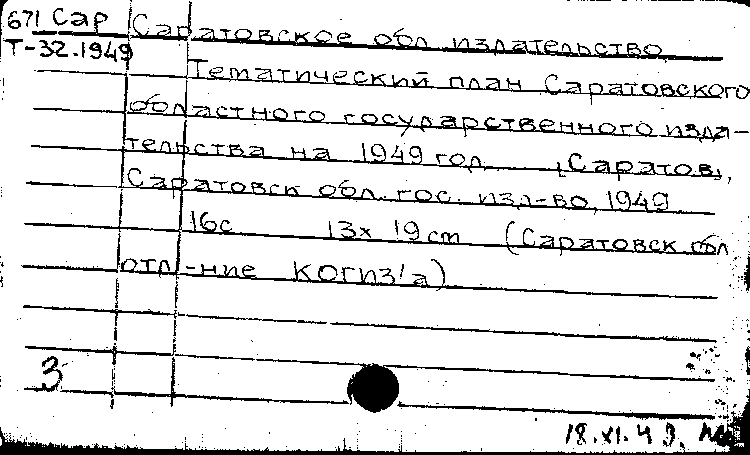 671 Сар Саратовское обл издательство
Т-32.1949
Тематический план Саратовского
областного государственного изда-
тельства на 1949 год [Саратов],
Саратовск обл. гос. изд-во, 1949
16с 13х 19 cm (Саратовск обл
отд-ние КОГИЗ'а)
3
18.XI.49.